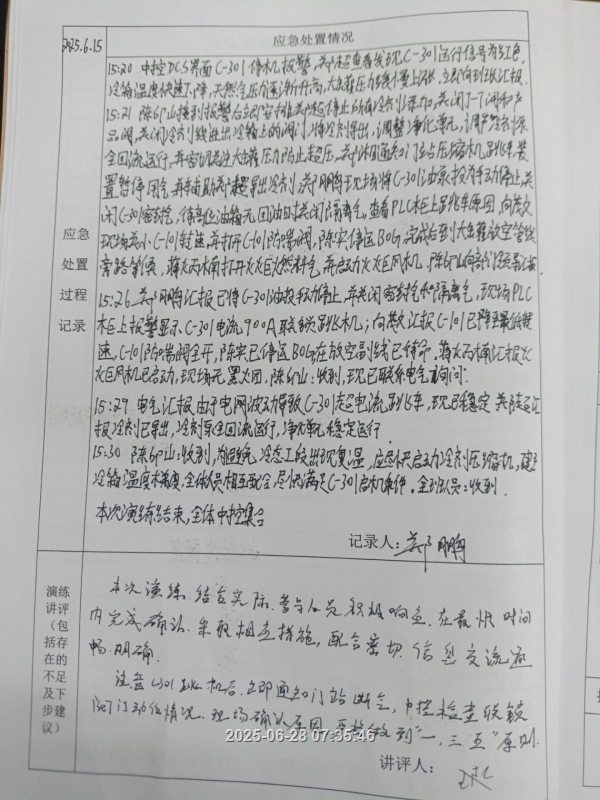 2025.6.15
应急处置情况
15:20 中控DCS界面C-301停机报警,超查看线发现C-301运行信号为红色,
冷箱温度快速下降,天然气压力逐渐升高,大罐压力缓慢上涨,立即向班长汇报.
15:21 接到报警后立即安排超停止所有冷剂添加,关闭J-T阀和产
品阀,关闭冷剂线进出冷箱上的阀门,将冷剂导出,调整净化单元,调整冷剂泵
全回流运行,并密切关注大罐压力防止超压,通知门站压缩机跳车,装
置暂停用气,并辅助超导出冷剂,郑鹏鹏现场将C-301油泵投为手动停止,关
闭C-301密封气,待高位油箱无回油时关闭隔离气,查看PLC柜上跳车原因,向
现场减小C-101转速,并打开C-101防喘阀,陈实停运BOG,完成后到大罐放空管线
旁路等候,打开火炬燃料气,并启动火炬风机,
应急
处置
过程
记录
15:26 郑鹏鹏汇报已将C-301油投手动停止,并关闭密封气和隔离气,现场PLC
柜上报警显示C-301电流900A联锁跳机;向汇报C-101已降至最低转
速,C-101防喘阀全开,陈实已停运BOG在放空副线已待命,汇报火
炬风机已启动,现场无黑火团,收到,现已联系电气询问.
15:29 电气汇报由于电网波动导致C-301超电流跳车,现已稳定 超汇
报冷剂已导出,冷剂泵全回流运行,净化单元稳定运行
15:30 收到,为避免冷态工段出现复温,应尽快启动冷剂压缩机,建立
冷箱温度梯度,全体人员相互配合,尽快满足C-301启机条件.全班人员:收到.
本次演练结束,全体中控集合
记录人:郑鹏鹏
演练
讲评
(包
括存
在的
不足
及下
步建
议)
本次演练结合实际,参与人员积极响应,在最快时间
内完成确认,采取相应措施,配合密切,信息交流通
畅、明确.
注意C301跳机后,立即通知门站断气,中控检查联锁
阀门动作情况,现场确认原因,严格做到"一、三、五"原则.
讲评人:
2025-06-28 07:35:46